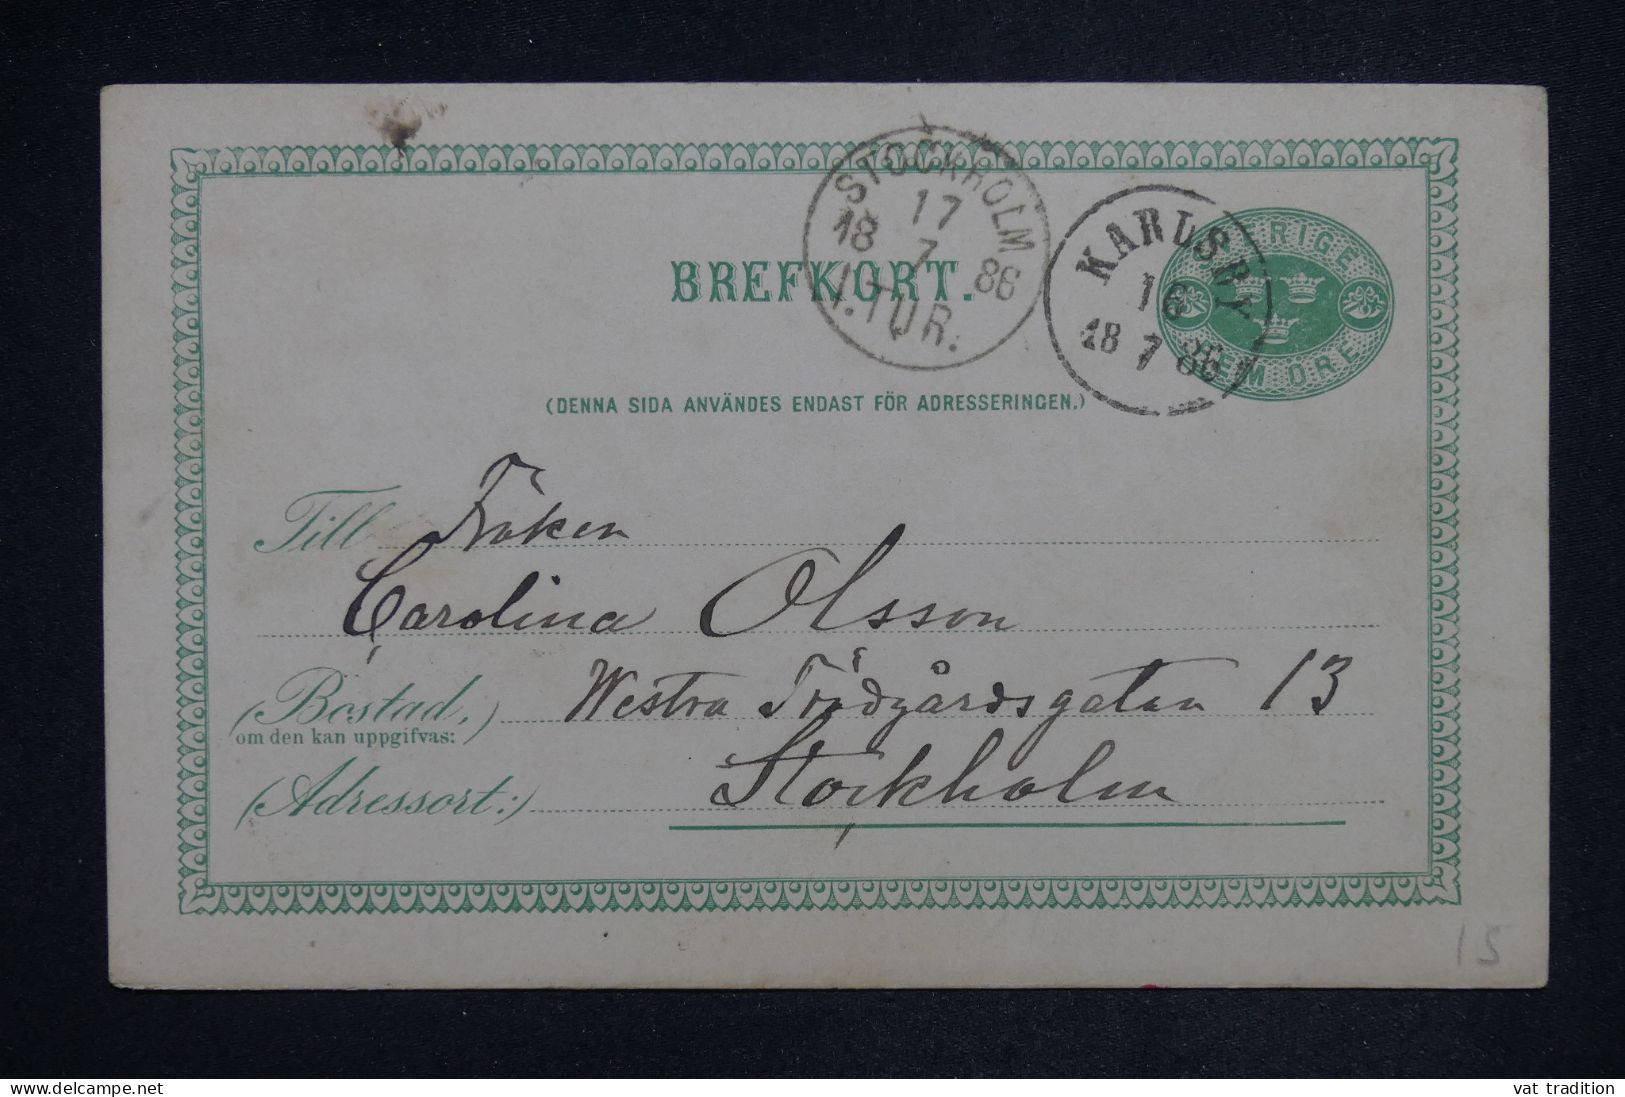 STOCKHOLM
17
18 7 86
1.TUR.
KARLSBY
16
18 7 86
SVERIGE
FEM ÖRE
BREFKORT.
(DENNA SIDA ANVÄNDES ENDAST FÖR ADRESSERINGEN.)
Till Fröken
Carolina Olsson
(Bostad,) Westra Trädgårdsgatan 13
om den kan uppgifvas:
(Adressort:) Stockholm
15
www.delcampe.net
vat tradition